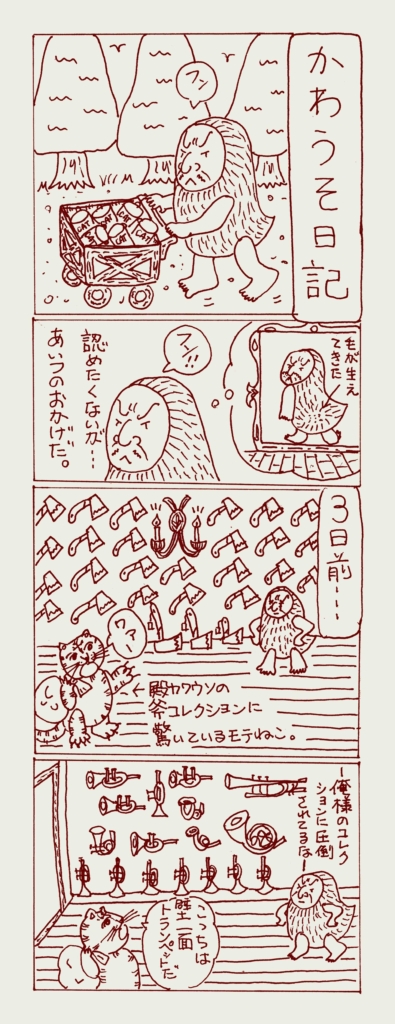 かわうそ日記
フン
CAT
CAT
CAT
CAT
CAT
毛が生え
てきた
フン!!
認めたくないが…
あいつのおかげだ。
3日前----
ワァー
←殿カワウソの
斧コレクションに
驚いているモテねこ。
俺様のコレク
ションに圧倒
されてるな
こっちは
壁一面
トランペットだ